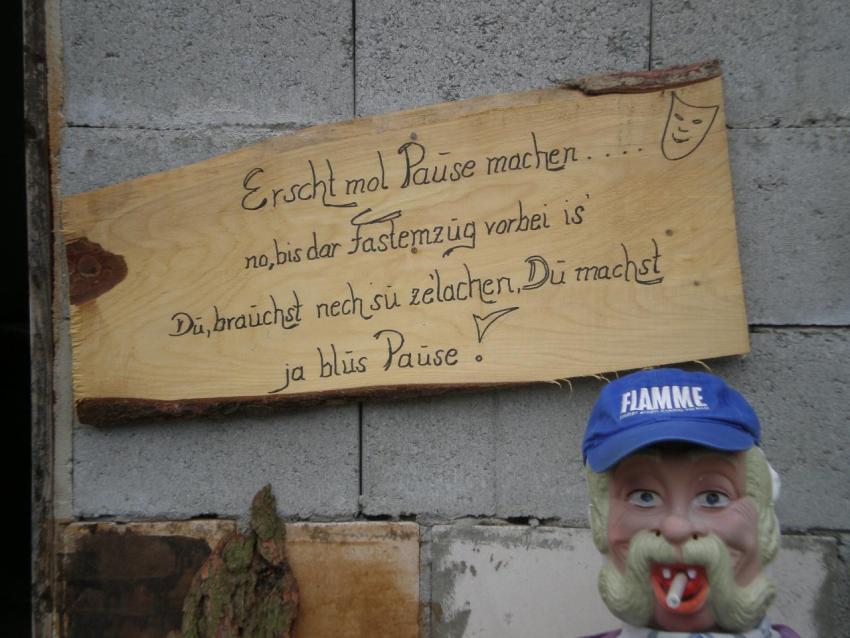 Erscht mol Pause machen.....
no,bis dar Fastemzug vorbei is'
Du,brauchst nech'su ze'lachen,Du machst
ja blus Pause !
FLAMME